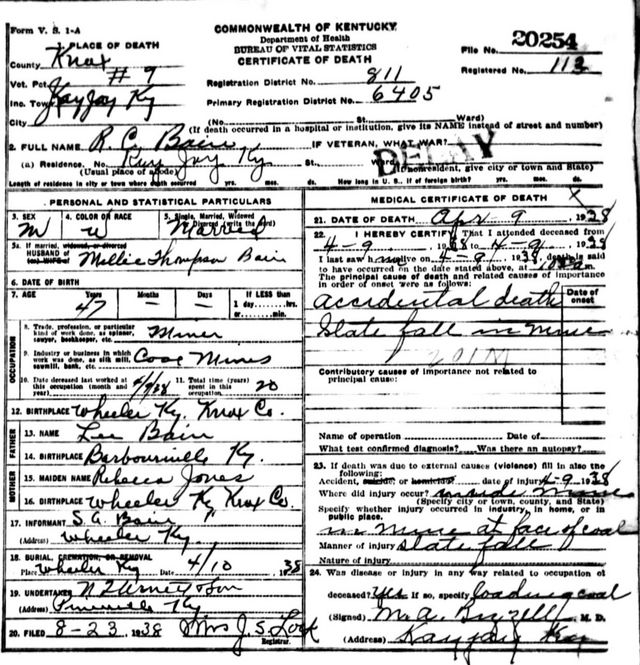 Form V. S. 1-A
COMMONWEALTH OF KENTUCKY
Department of Health
BUREAU OF VITAL STATISTICS
CERTIFICATE OF DEATH
File No. 20254
Registered No. 112
1 PLACE OF DEATH
County Knox
Vot. Pct. #9
Inc. Town KayJay Ky
City
Registration District No. 811
Primary Registration District No. 6405
(No. St. Ward)
(If death occurred in a hospital or institution, give its NAME instead of street and number)
2. FULL NAME R. C. Bain IF VETERAN, WHAT WAR?
DELAY
(a) Residence. No. Kay Jay Ky. St. Ward
(Usual place of abode) (If nonresident, give city or town and State)
Length of residence in city or town where death occurred yrs. mos. ds. How long in U. S., if of foreign birth? yrs. mos. ds.
PERSONAL AND STATISTICAL PARTICULARS
3. SEX M
4. COLOR OR RACE W
5. Single, Married, Widowed
Divorced (write the word) Married
5a. If married, widowed, or divorced
HUSBAND OF
(or) WIFE OF Mollie Thompson Bain
6. DATE OF BIRTH
7. AGE Years 47 Months – Days –
If LESS than
1 day......hrs.
or......min.
OCCUPATION
8. Trade, profession, or particular
kind of work done, as spinner,
sawyer, bookkeeper, etc. Miner
9. Industry or business in which
work was done, as silk mill,
sawmill, bank, etc. Coal Mines
10. Date deceased last worked at
this occupation (month and
year) 4/9/38
11. Total time (years)
spent in this
occupation 20
12. BIRTHPLACE Wheeler Ky. Knox Co.
FATHER
13. NAME Lee Bain
14. BIRTHPLACE Barbourville Ky.
MOTHER
15. MAIDEN NAME Rebecca Jones
16. BIRTHPLACE Wheeler Ky Knox Co.
17. INFORMANT S. G. Bain "
(Address) Wheeler Ky.
18. BURIAL, CREMATION, OR REMOVAL
Place Wheeler Ky Date 4/10 1938
19. UNDERTAKER & Son
(Address) Pineville Ky
20. FILED 8-23, 1938 Mrs J. S. Lock
Registrar.
MEDICAL CERTIFICATE OF DEATH X
21. DATE OF DEATH Apr 9, 1938
22. I HEREBY CERTIFY, That I attended deceased from
4-9, 1938 to 4-9, 1938
I last saw h alive on 4-9, 1938, death is said
to have occurred on the date stated above, at m.
The principal cause of death and related causes of importance
in order of onset were as follows:
Date of
onset
accidental death
Slate fall in mine
Contributory causes of importance not related to
principal cause:
Name of operation Date of
What test confirmed diagnosis? Was there an autopsy?
23. If death was due to external causes (violence) fill in also the
following:
Accident, suicide or homicide date of injury 4-9 1938
Where did injury occur? inside mine
(Specify city or town, county, and State)
Specify whether injury occurred in industry, in home, or in
public place.
in mine at face of coal
Manner of injury slate fall
Nature of injury
24. Was disease or injury in any way related to occupation of
deceased? Yes If so, specify loading coal
(Signed) M. A. M. D.
(Address) Kayjay Ky